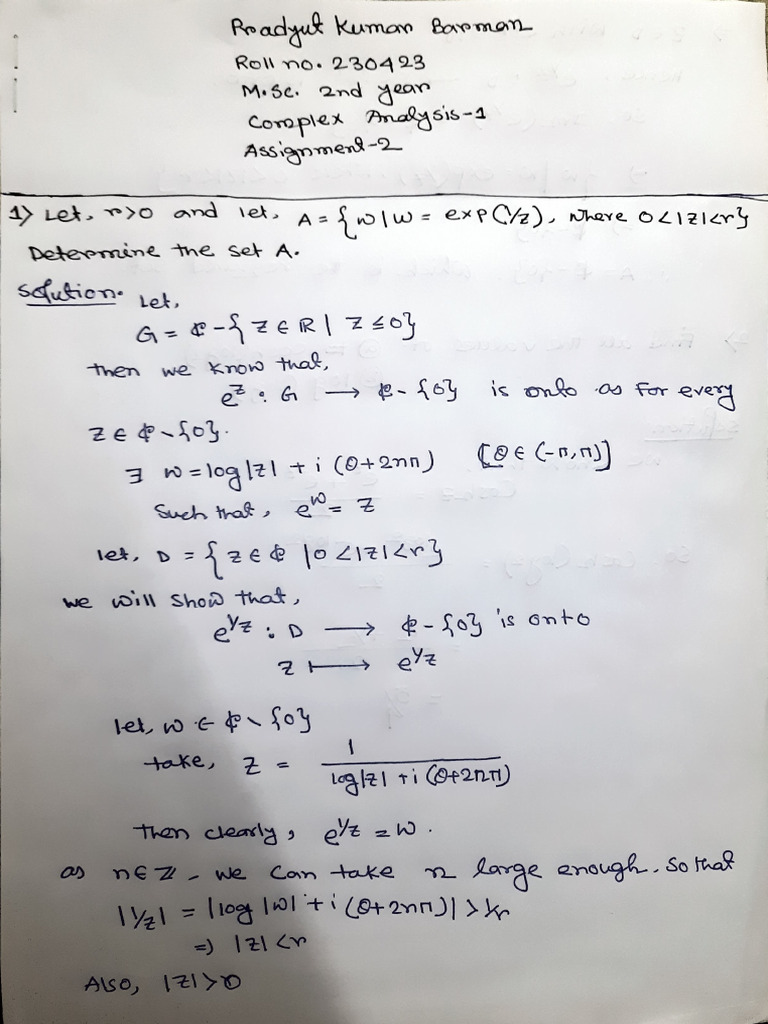 Pradyut Kumar Barman
Roll no. 230423
M.Sc. 2nd year
Complex Analysis-1
Assignment-2
1> Let, r>0 and let, A = {w | w = exp(1/z), where 0<|z|<r}
Determine the set A.
Solution. Let,
G = ℂ - {z ∈ ℝ | z ≤ 0}
then we know that,
e^z : G ⟶ ℂ - {0} is onto as for every
z ∈ ℂ \ {0}.
∃ w = log|z| + i (θ+2nπ) [θ ∈ (-π, π)]
Such that, e^w = z
let, D = {z ∈ ℂ | 0 < |z| < r}
we will show that,
e^1/z : D ⟶ ℂ - {0} is onto
z ⟼ e^1/z
let, w ∈ ℂ \ {0}
take, z = 1 / (log|z| + i (θ+2nπ))
Then clearly, e^1/z = w.
as n ∈ ℤ, we can take n large enough. So that
|1/z| = |log |w| + i (θ+2nπ)| > 1/r
=> |z| < r
Also, |z| > 0